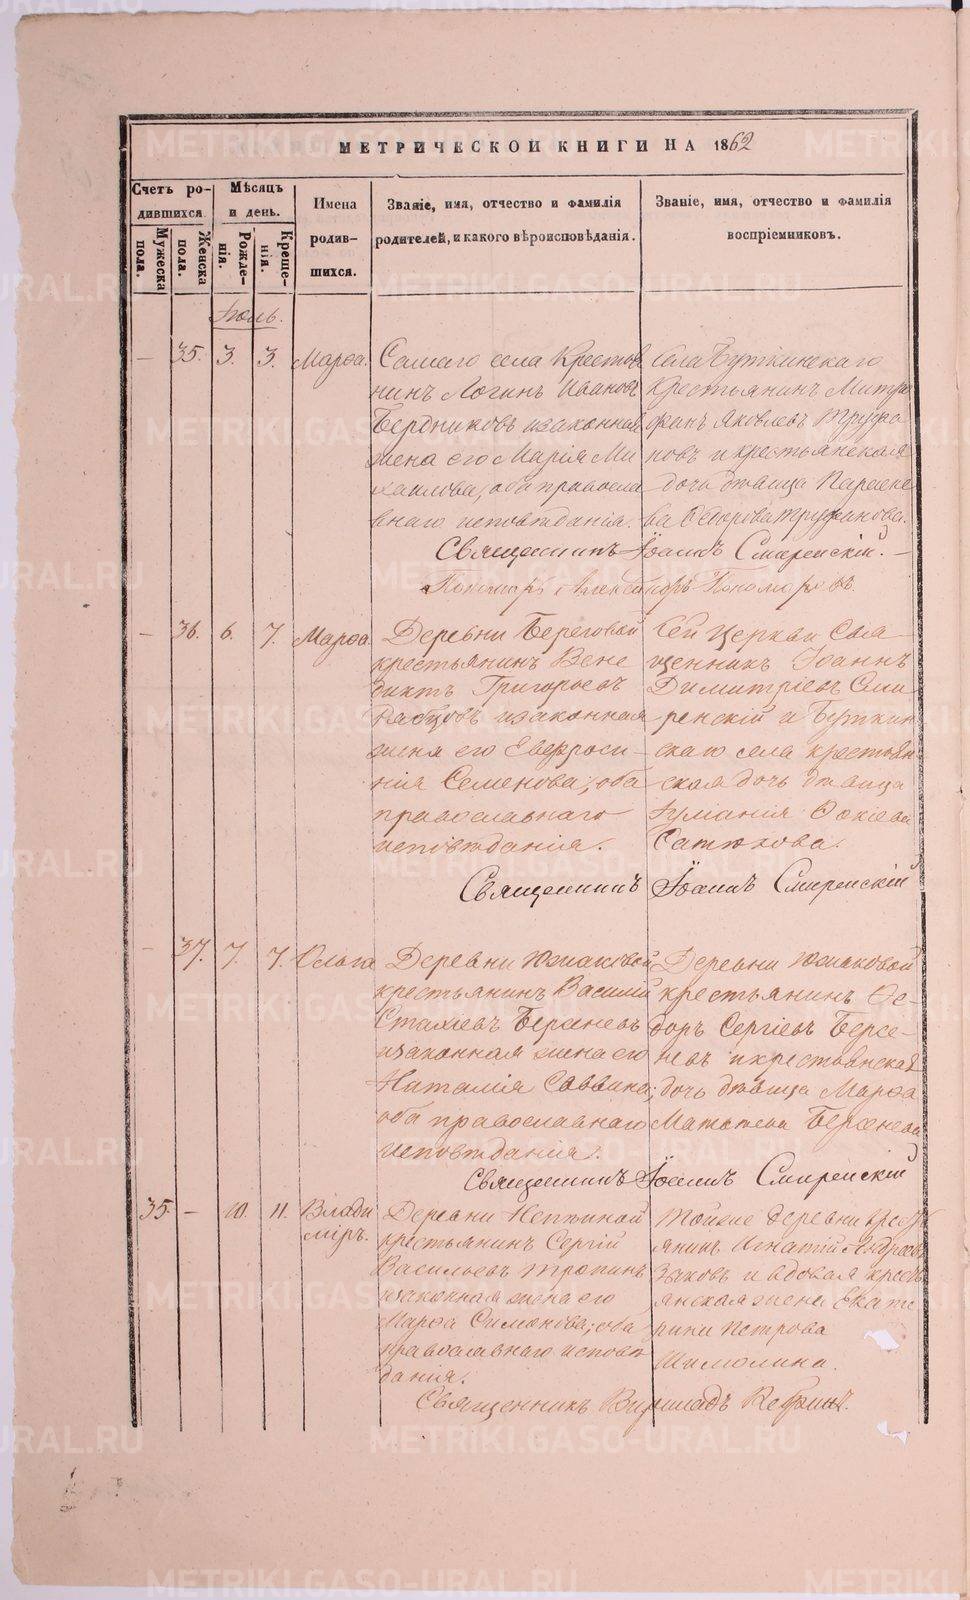 МЕТРИЧЕСКОЙ КНИГИ НА 1862
Счетъ родившихся.
Мужеска пола.
Женска пола.
Мѣсяцъ и день.
Рожденія.
Крещенія.
Имена родившихся.
Званіе, имя, отчество и фамилія
родителей, и какого вѣроисповѣданія.
Званіе, имя, отчество и фамилія
воспріемниковъ.
Іюль.
— 35. 3. 3. Марѳа.
Самаго села Крестья
нинъ Логинъ Ивановъ
Бердниковъ изаконная
жена его Марія Ми
хаилова, оба правосла
внаго исповѣданія.
села Буткинскаго
Крестьянинъ Митро
фанъ Яковлевъ Труха
новъ и крестьянская
дочь дѣвица Параске
ва Ѳедорова
Священникъ Іоаннъ Смиренскій.
Пономарь Александръ Пономаревъ
— 36. 6. 7. Марѳа.
Деревни Береговой
крестьянинъ Вене
диктъ Григорьевъ
изаконная
жена его Евфроси
нія Семенова, оба
православнаго
исповѣданія.
Сей церкви Свя
щенникъ Іоаннъ
Димитріевъ Сми
ренскій и Буткин
скаго села крестьян
ская дочь дѣвица
Сатюкова.
Священникъ Іоаннъ Смиренскій
— 37. 7. 7. Ольга
Деревни Южаковой
крестьянинъ Василій
Берсеневъ
изаконная жена его
Наталія Саввина;
оба православнаго
исповѣданія.
Деревни Южаковой
крестьянинъ Ѳе-
доръ Сергіевъ Берсе-
невъ икрестьянская
дочь дѣвица Марѳа
Матѳеева Берсенева
Священникъ Іоаннъ Смиренскій
35. — 10. 11. Влади
міръ.
Деревни Непѣиной
крестьянинъ Сергій
Васильевъ Тропинъ
изаконная жена его
Марѳа Симонова; оба
православнаго исповѣ
данія.
Тойже деревни крестья
янинъ Игнатій Андреевъ
Зыковъ и вдовая кресть
янская жена Екате
рина Петрова
Шимолина.
Священникъ
METRIKI.GASO-URAL.RU